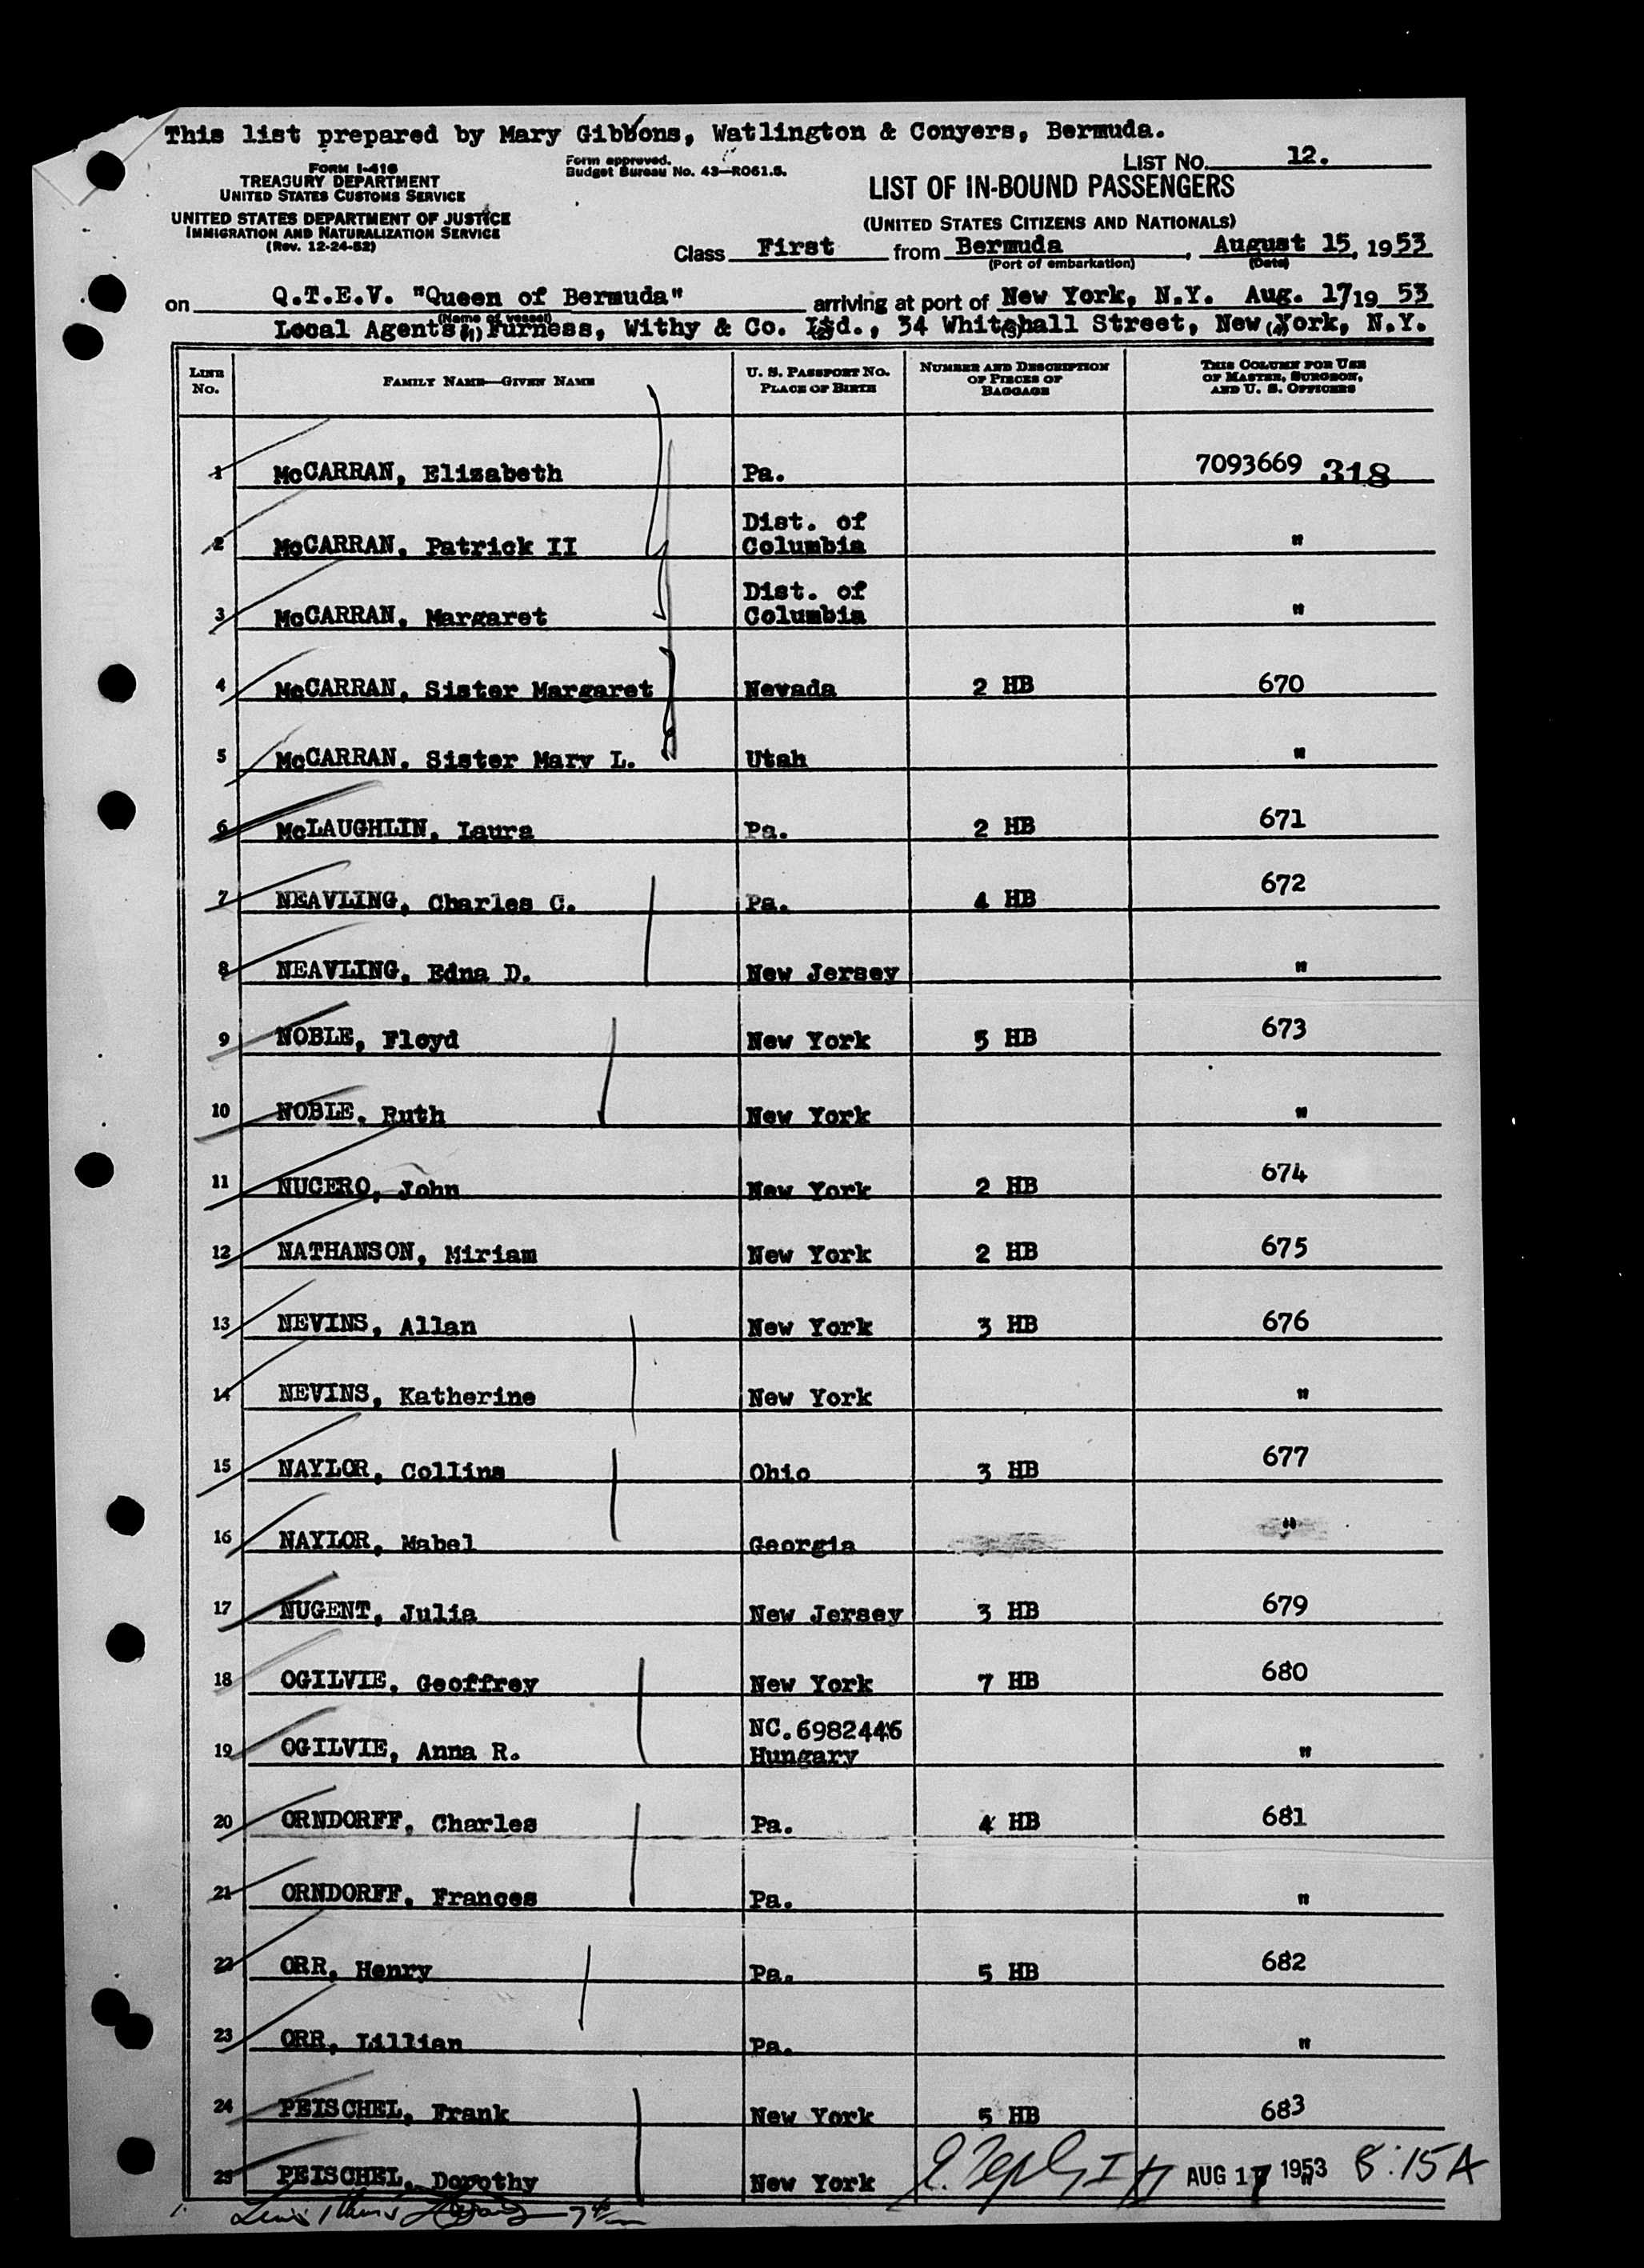 This list prepared by Mary Gibbons, Watlington & Conyers, Bermuda.
FORM I-416
TREASURY DEPARTMENT
UNITED STATES CUSTOMS SERVICE
UNITED STATES DEPARTMENT OF JUSTICE
IMMIGRATION AND NATURALIZATION SERVICE
(Rev. 12-24-52)
Form approved.
Budget Bureau No. 43—R061.5.
LIST NO. 12.
LIST OF IN-BOUND PASSENGERS
(UNITED STATES CITIZENS AND NATIONALS)
Class First from Bermuda, August 15, 1953
(Port of embarkation) (Date)
on Q.T.E.V. "Queen of Bermuda" arriving at port of New York, N.Y. Aug. 17 19 53
(Name of vessel)
Local Agents, Furness, Withy & Co. Ltd., 34 Whitehall Street, New York, N.Y.
(1) (2) (3) (4)
LINE NO. FAMILY NAME—GIVEN NAME U. S. PASSPORT NO. PLACE OF BIRTH NUMBER AND DESCRIPTION OF PIECES OF BAGGAGE THIS COLUMN FOR USE OF MASTER, SURGEON, AND U. S. OFFICERS
1 McCARRAN, Elizabeth Pa. 7093669 318
2 McCARRAN, Patrick II Dist. of Columbia "
3 McCARRAN, Margaret Dist. of Columbia "
4 McCARRAN, Sister Margaret Nevada 2 HB 670
5 McCARRAN, Sister Mary L. Utah "
6 McLAUGHLIN, Laura Pa. 2 HB 671
7 NEAVLING, Charles C. Pa. 4 HB 672
8 NEAVLING, Edna D. New Jersey "
9 NOBLE, Floyd New York 5 HB 673
10 NOBLE, Ruth New York "
11 NUCERO, John New York 2 HB 674
12 NATHANSON, Miriam New York 2 HB 675
13 NEVINS, Allan New York 3 HB 676
14 NEVINS, Katherine New York "
15 NAYLOR, Collins Ohio 3 HB 677
16 NAYLOR, Mabel Georgia "
17 NUGENT, Julia New Jersey 3 HB 679
18 OGILVIE, Geoffrey New York 7 HB 680
19 OGILVIE, Anna R. NC.6982446 Hungary "
20 ORNDORFF, Charles Pa. 4 HB 681
21 ORNDORFF, Frances Pa. "
22 ORR, Henry Pa. 5 HB 682
23 ORR, Lillian Pa. "
24 PEISCHEL, Frank New York 5 HB 683
25 PEISCHEL, Dorothy New York AUG 17 1953 " 8:15A